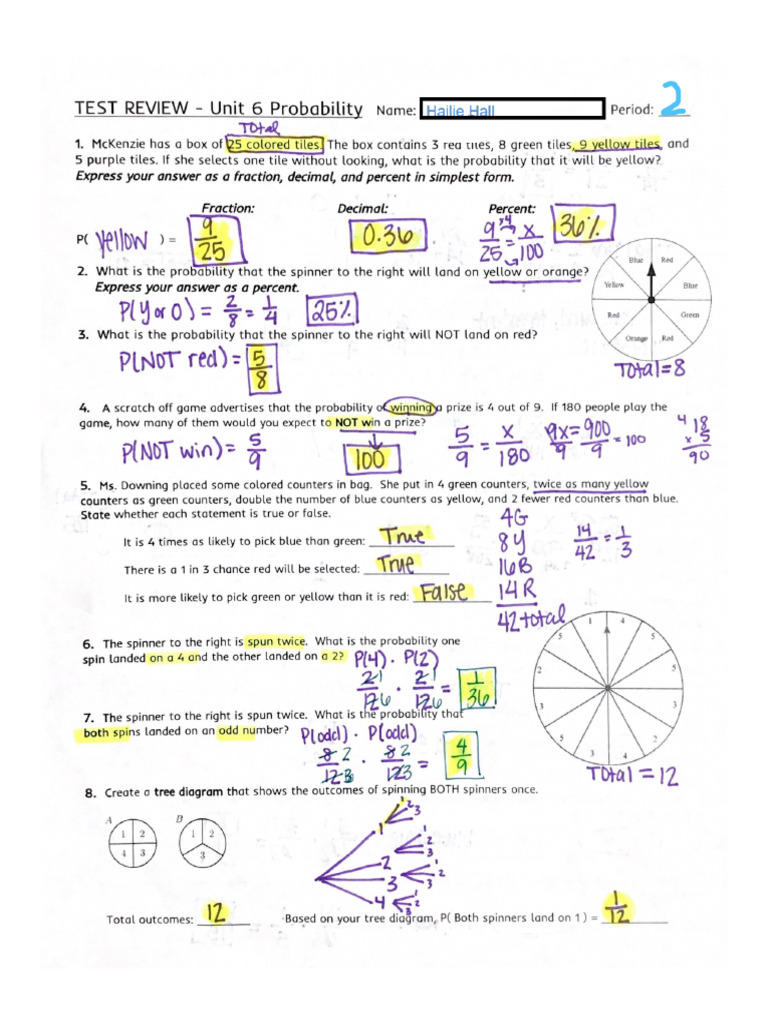 2
TEST REVIEW - Unit 6 Probability Name: Hailie Hall Period:
Total
1. McKenzie has a box of 25 colored tiles. The box contains 3 red tiles, 8 green tiles, 9 yellow tiles, and
5 purple tiles. If she selects one tile without looking, what is the probability that it will be yellow?
Express your answer as a fraction, decimal, and percent in simplest form.
Fraction: Decimal: Percent:
P( yellow ) = 9/25 0.36 9/25 = x/100 x4 36%
2. What is the probability that the spinner to the right will land on yellow or orange?
Express your answer as a percent.
P(Y or O) = 2/8 = 1/4 25%
Blue Red
Yellow Blue
Red Green
Orange Red
Total=8
3. What is the probability that the spinner to the right will NOT land on red?
P(NOT red) = 5/8
4. A scratch off game advertises that the probability of winning a prize is 4 out of 9. If 180 people play the
game, how many of them would you expect to NOT win a prize?
P(NOT win) = 5/9 100 5/9 = x/180 9x/9 = 900/9 = 100
4
18
x 5
90
5. Ms. Downing placed some colored counters in bag. She put in 4 green counters, twice as many yellow
counters as green counters, double the number of blue counters as yellow, and 2 fewer red counters than blue.
State whether each statement is true or false.
4G
8Y
16B
14R
42 total
14/42 = 1/3
It is 4 times as likely to pick blue than green: True
There is a 1 in 3 chance red will be selected: True
It is more likely to pick green or yellow than it is red: False
6. The spinner to the right is spun twice. What is the probability one
spin landed on a 4 and the other landed on a 2? P(4) · P(2)
2 1/12 6 · 2 1/12 6 = 1/36
7. The spinner to the right is spun twice. What is the probability that
both spins landed on an odd number? P(odd) · P(odd)
8 2/12 3 · 8 2/12 3 = 4/9
Total = 12
8. Create a tree diagram that shows the outcomes of spinning BOTH spinners once.
A B
1 2 1 2
4 3 3
1 1 2 3
2 1 2 3
3 1 2 3
4 1 2 3
Total outcomes: 12 Based on your tree diagram, P( Both spinners land on 1 ) = 1/12